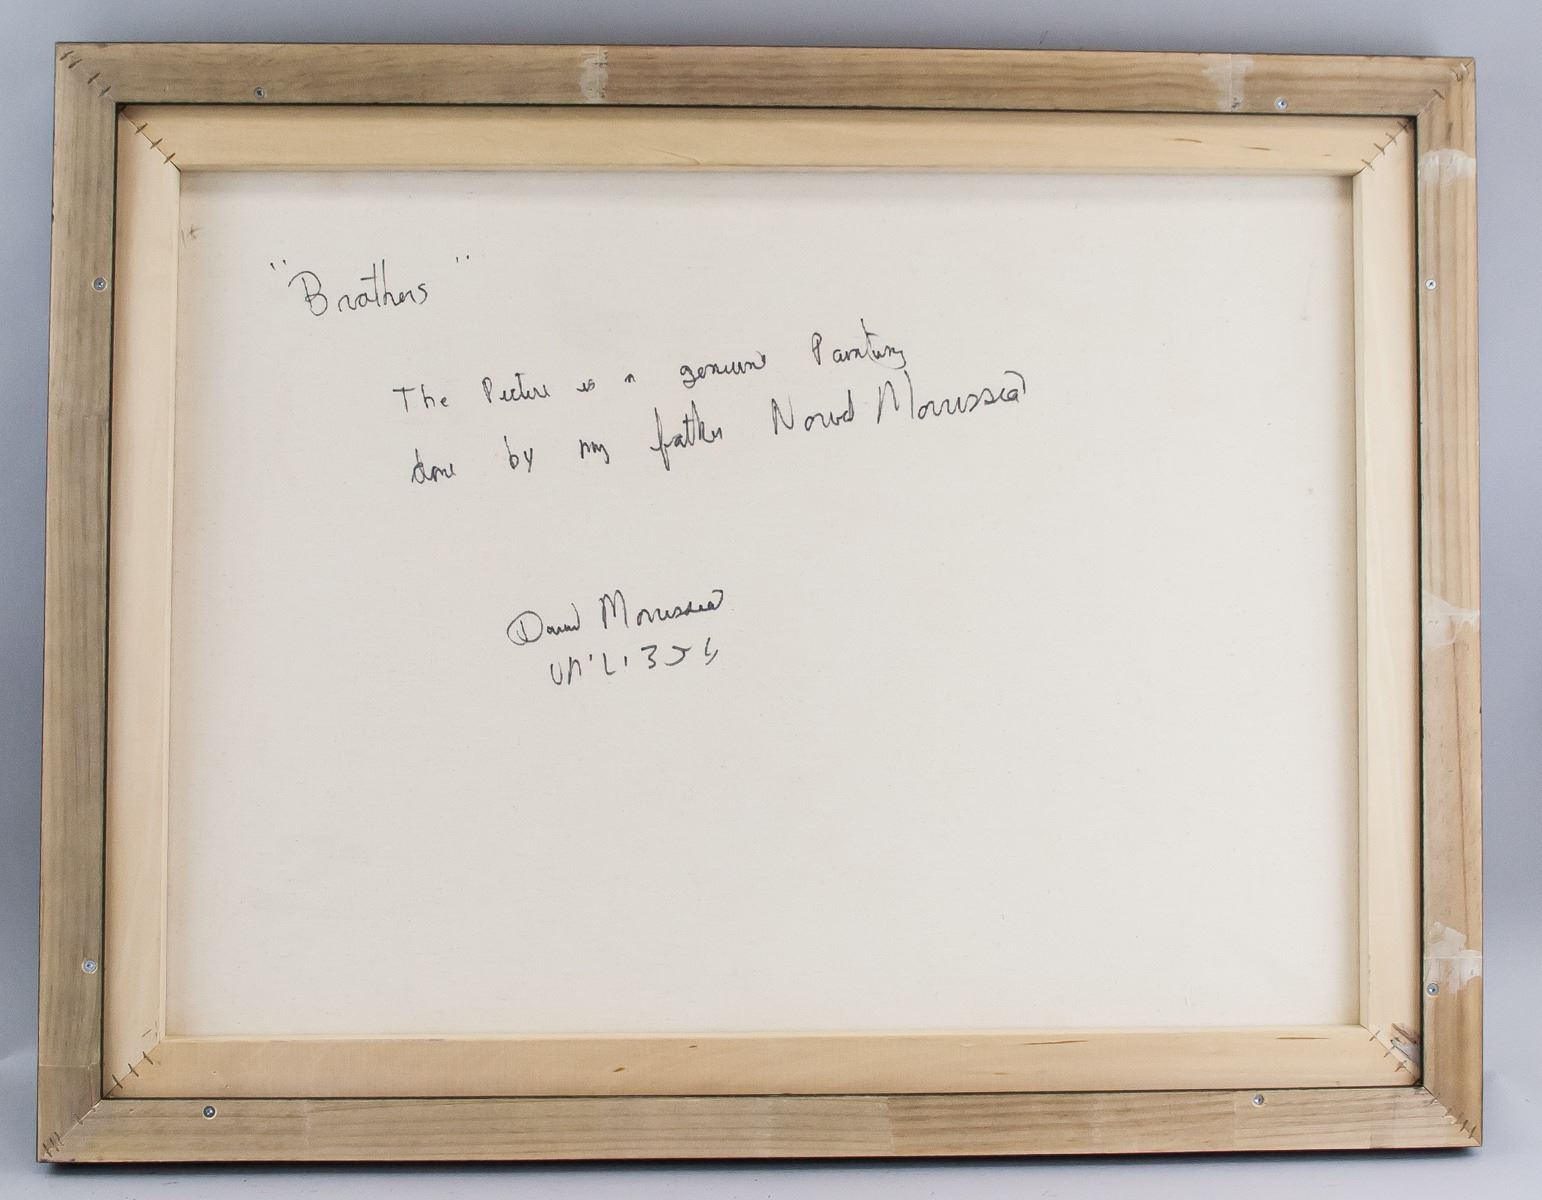 "Brothers"
The Picture is a genuine Painting
done by my father Norval Morrisseau
David Morrisseau